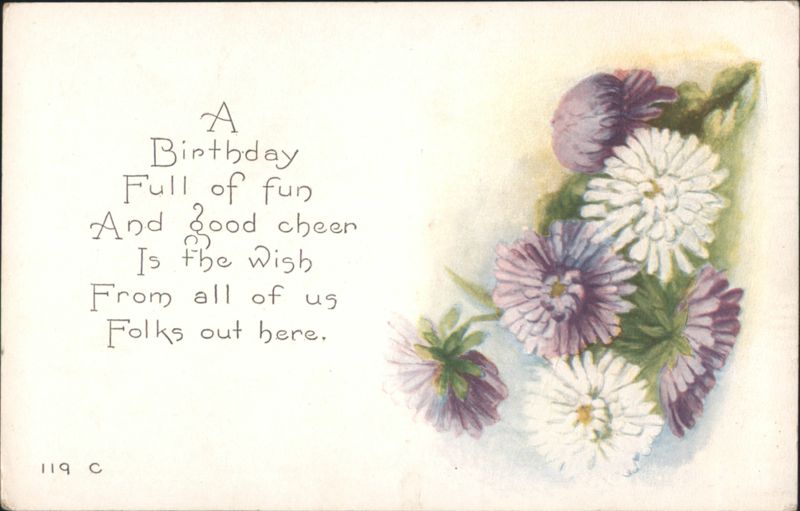 A
Birthday
Full of fun
And good cheer
Is the wish
From all of us
Folks out here.
119 C